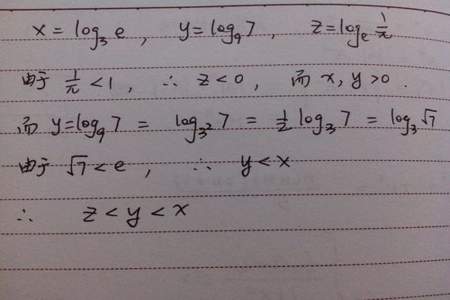 x = log₃ e , y = log₉ 7 , z = logₑ 1/π
由于 1/π < 1 , ∴ z < 0 , 而 x, y > 0 .
而 y = log₉ 7 = log₃² 7 = 1/2 log₃ 7 = log₃ √7
由于 √7 < e , ∴ y < x
∴ z < y < x